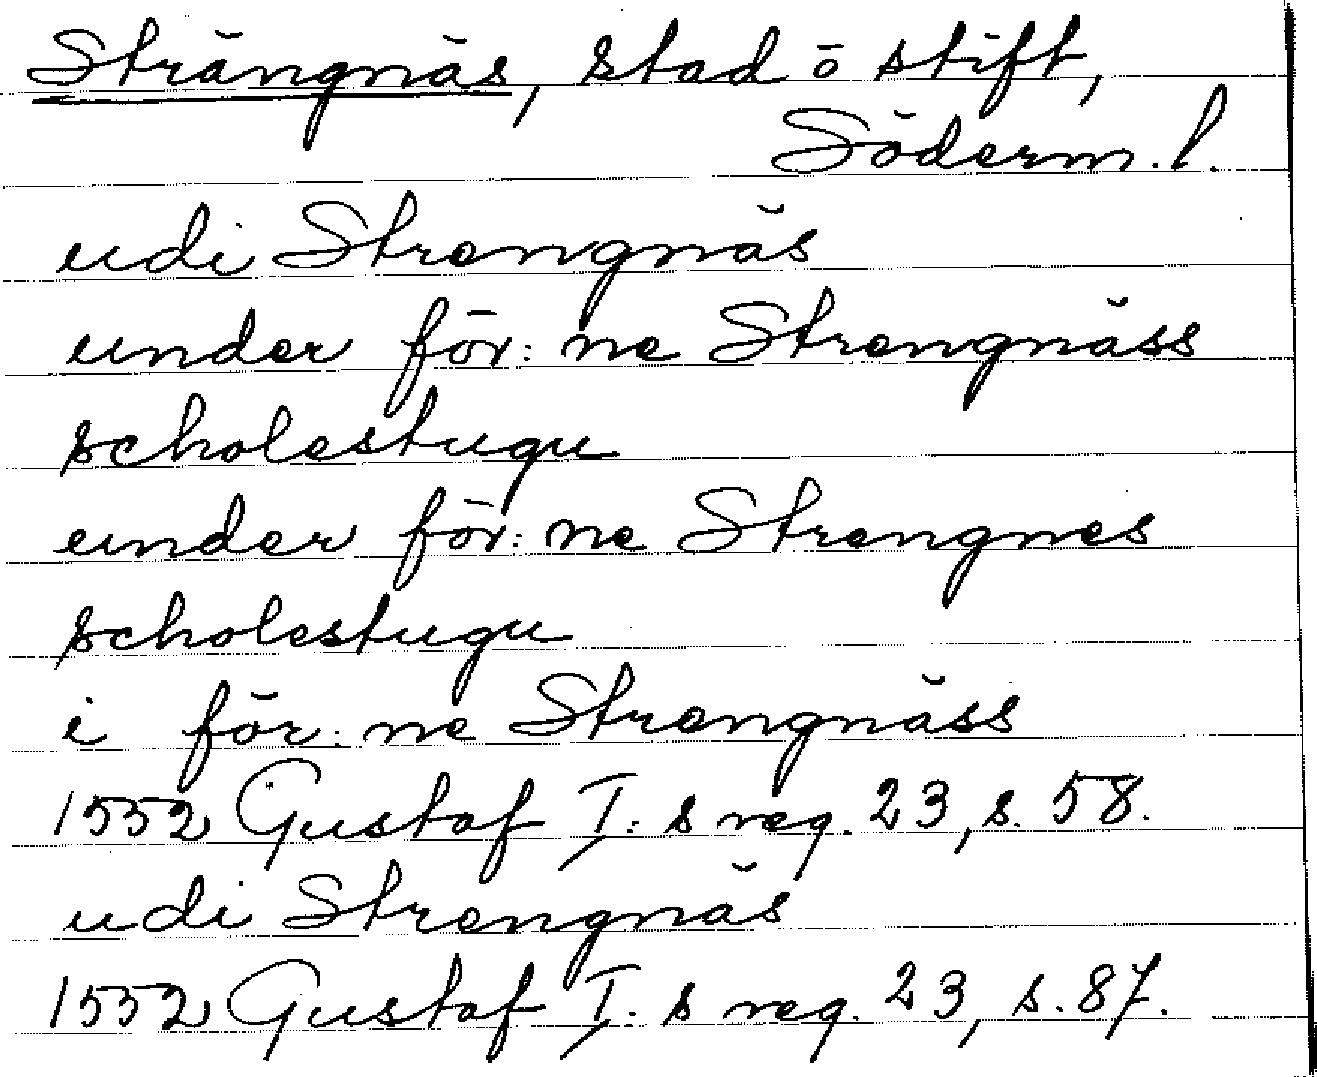 Strängnäs, stad o stift,
Söderm. l.
udi Strengnäs
under för: ne Strengnäss
scholestugu
under för: ne Strengnes
scholestugu
i för: ne Strengnäss
1552 Gustaf I: s reg. 23, s. 58.
udi Strengnäs
1552 Gustaf I. s reg. 23, s. 87.